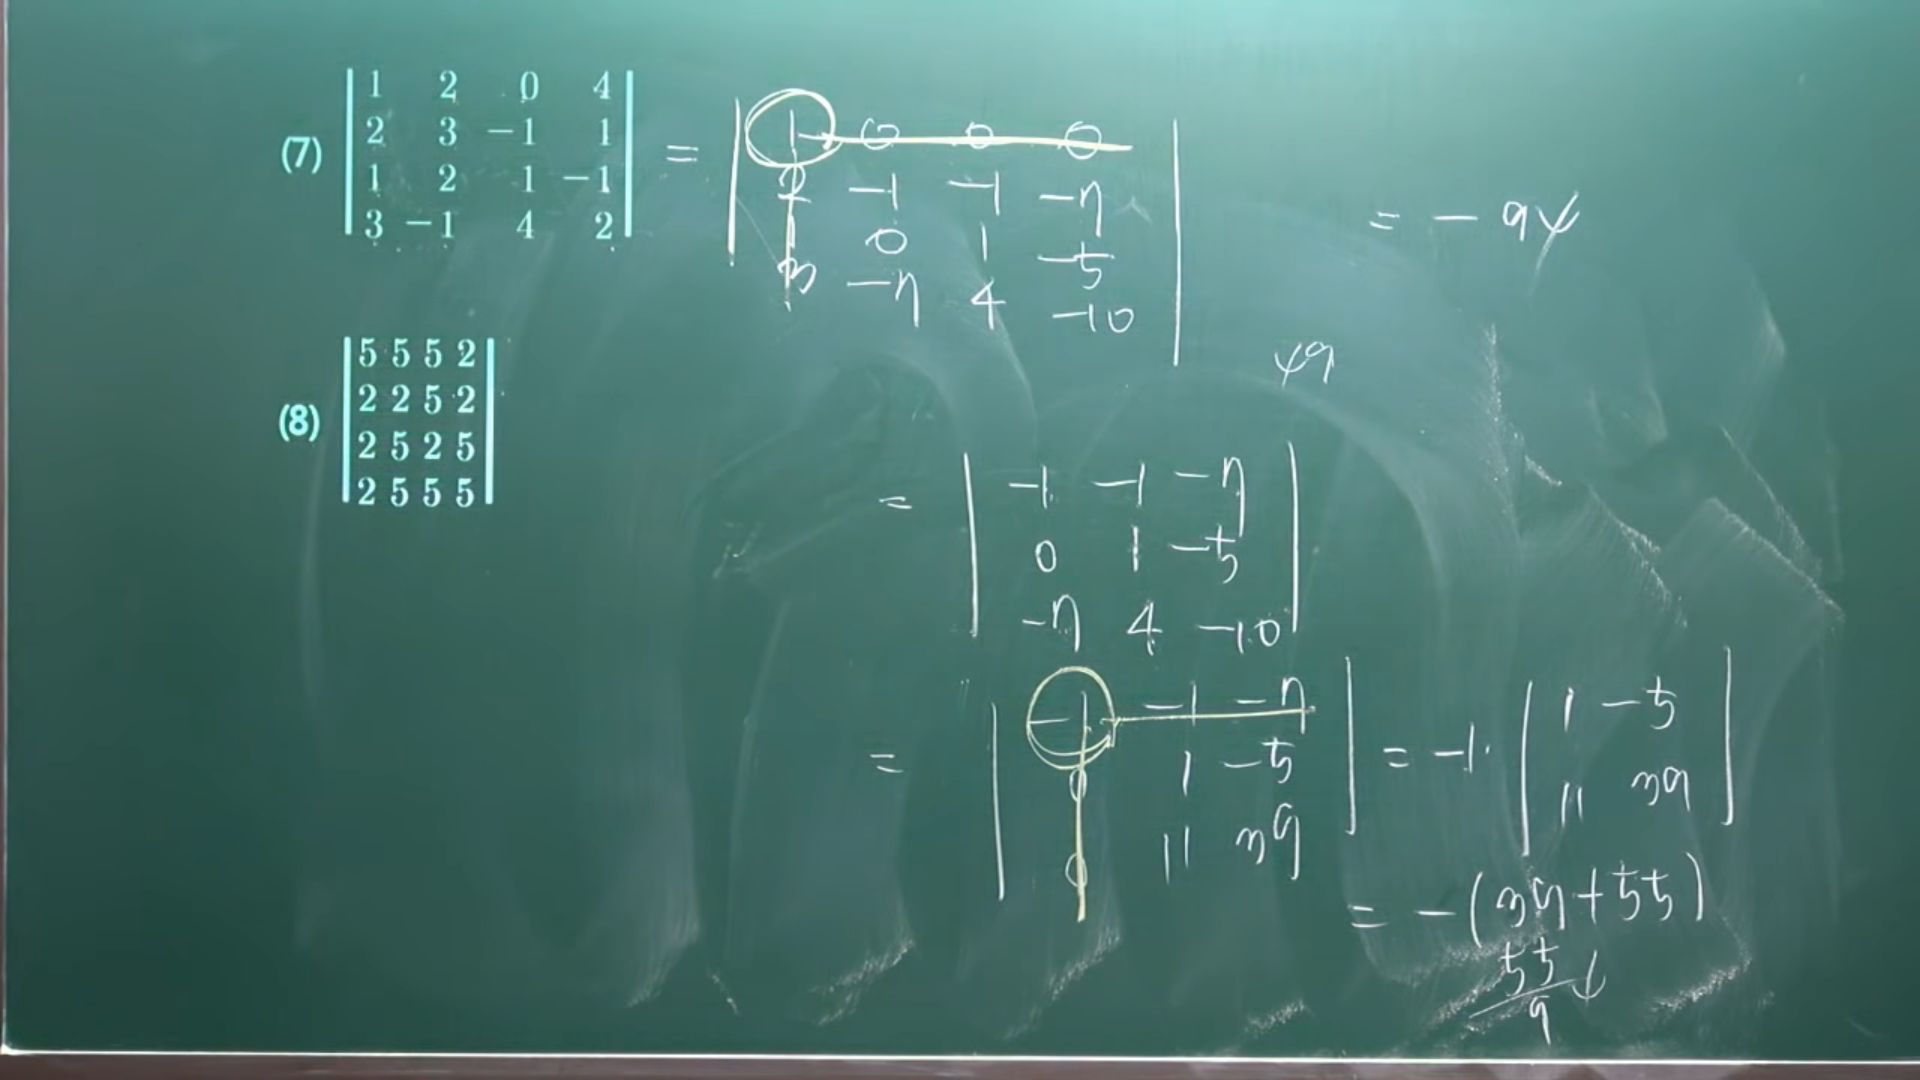 (7) | 1 2 0 4 |
| 2 3 -1 1 |
| 1 2 1 -1 |
| 3 -1 4 2 |
= | 1 0 0 0 |
| 2 -1 -1 -7 |
| 1 0 1 -5 |
| 3 -7 4 -10 |
= -94
49
(8) | 5 5 5 2 |
| 2 2 5 2 |
| 2 5 2 5 |
| 2 5 5 5 |
= | -1 -1 -7 |
| 0 1 -5 |
| -7 4 -10 |
= | -1 -1 -7 |
| 0 1 -5 |
| 0 11 39 |
= -1· | 1 -5 |
| 11 39 |
= -(39+55)
55
94